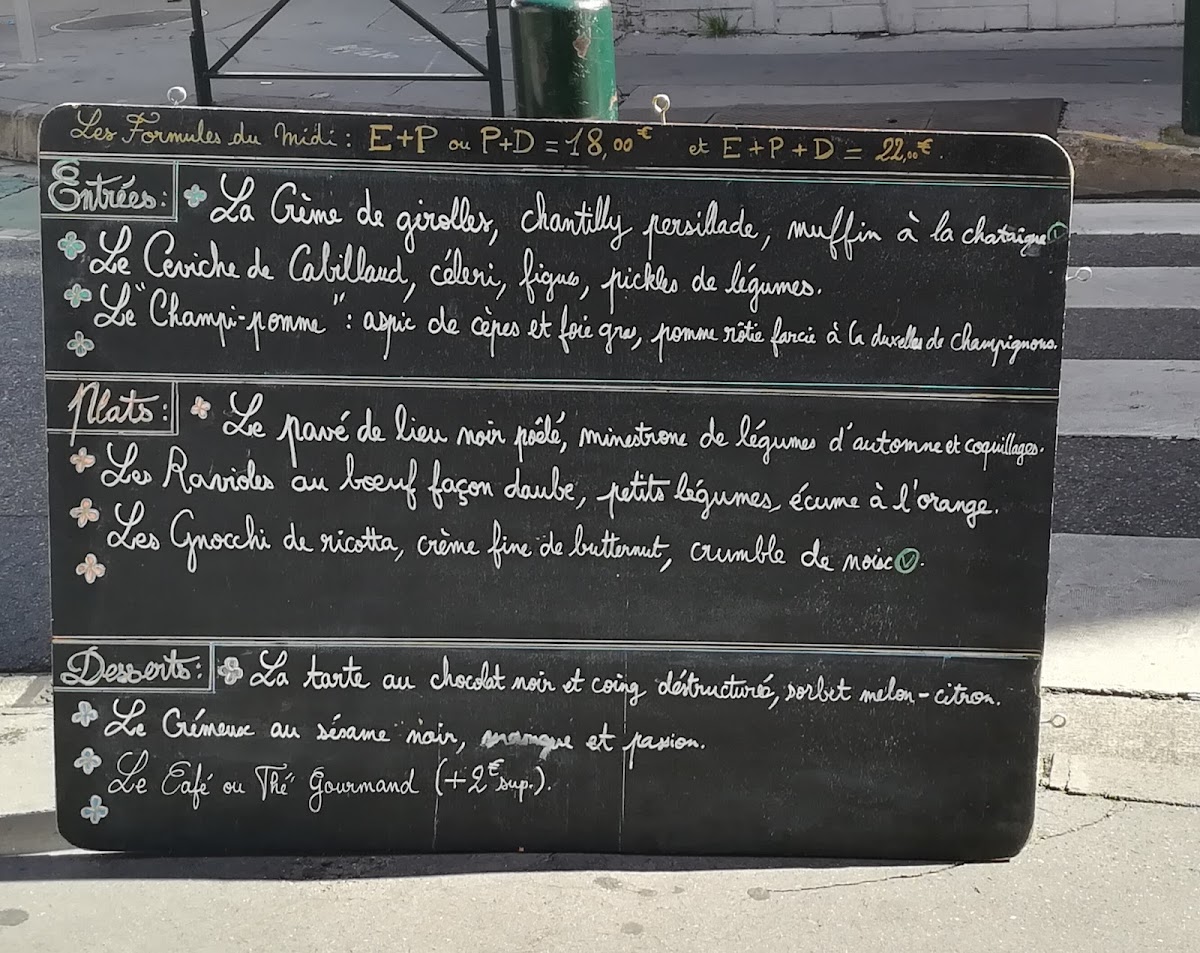 Les Formules du Midi : E+P ou P+D = 18,00€ et E+P+D = 22,00€.
Entrées : La Crème de girolles, chantilly persillade, muffin à la chataigne V
Le Ceviche de Cabillaud, céleri, figue, pickles de légumes.
Le "Champi-pomme" : aspic de cèpes et foie gras, pomme rôtie farcie à la duxelles de champignons.
Plats : Le pavé de lieu noir poêlé, minestrone de légumes d'automne et coquillages.
Les Ravioles au boeuf façon daube, petits légumes, écume à l'orange.
Les Gnocchi de ricotta, crème fine de butternut, crumble de noix V.
Desserts : La tarte au chocolat noir et coing déstructurée, sorbet melon-citron.
Le Crémeux au sésame noir, mangue et passion.
Le Café ou Thé Gourmand (+2€ sup.).